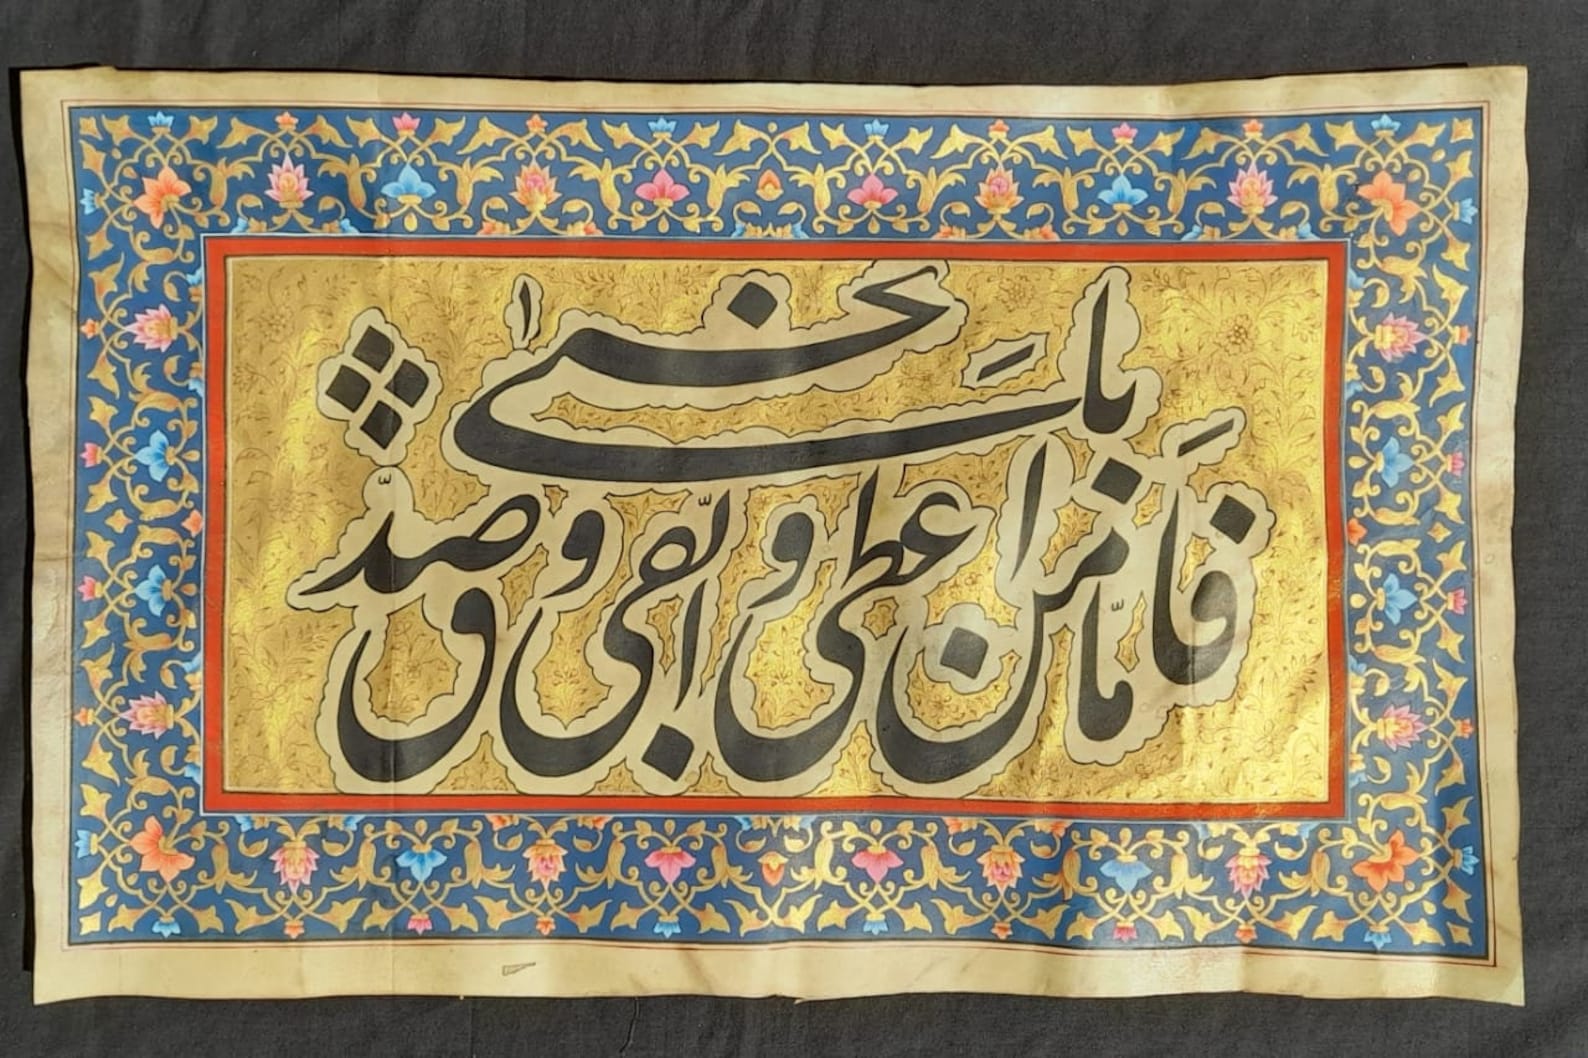 فَأَمّا مَن اعطی و اتّقی و صدّق
بِالحُسنی